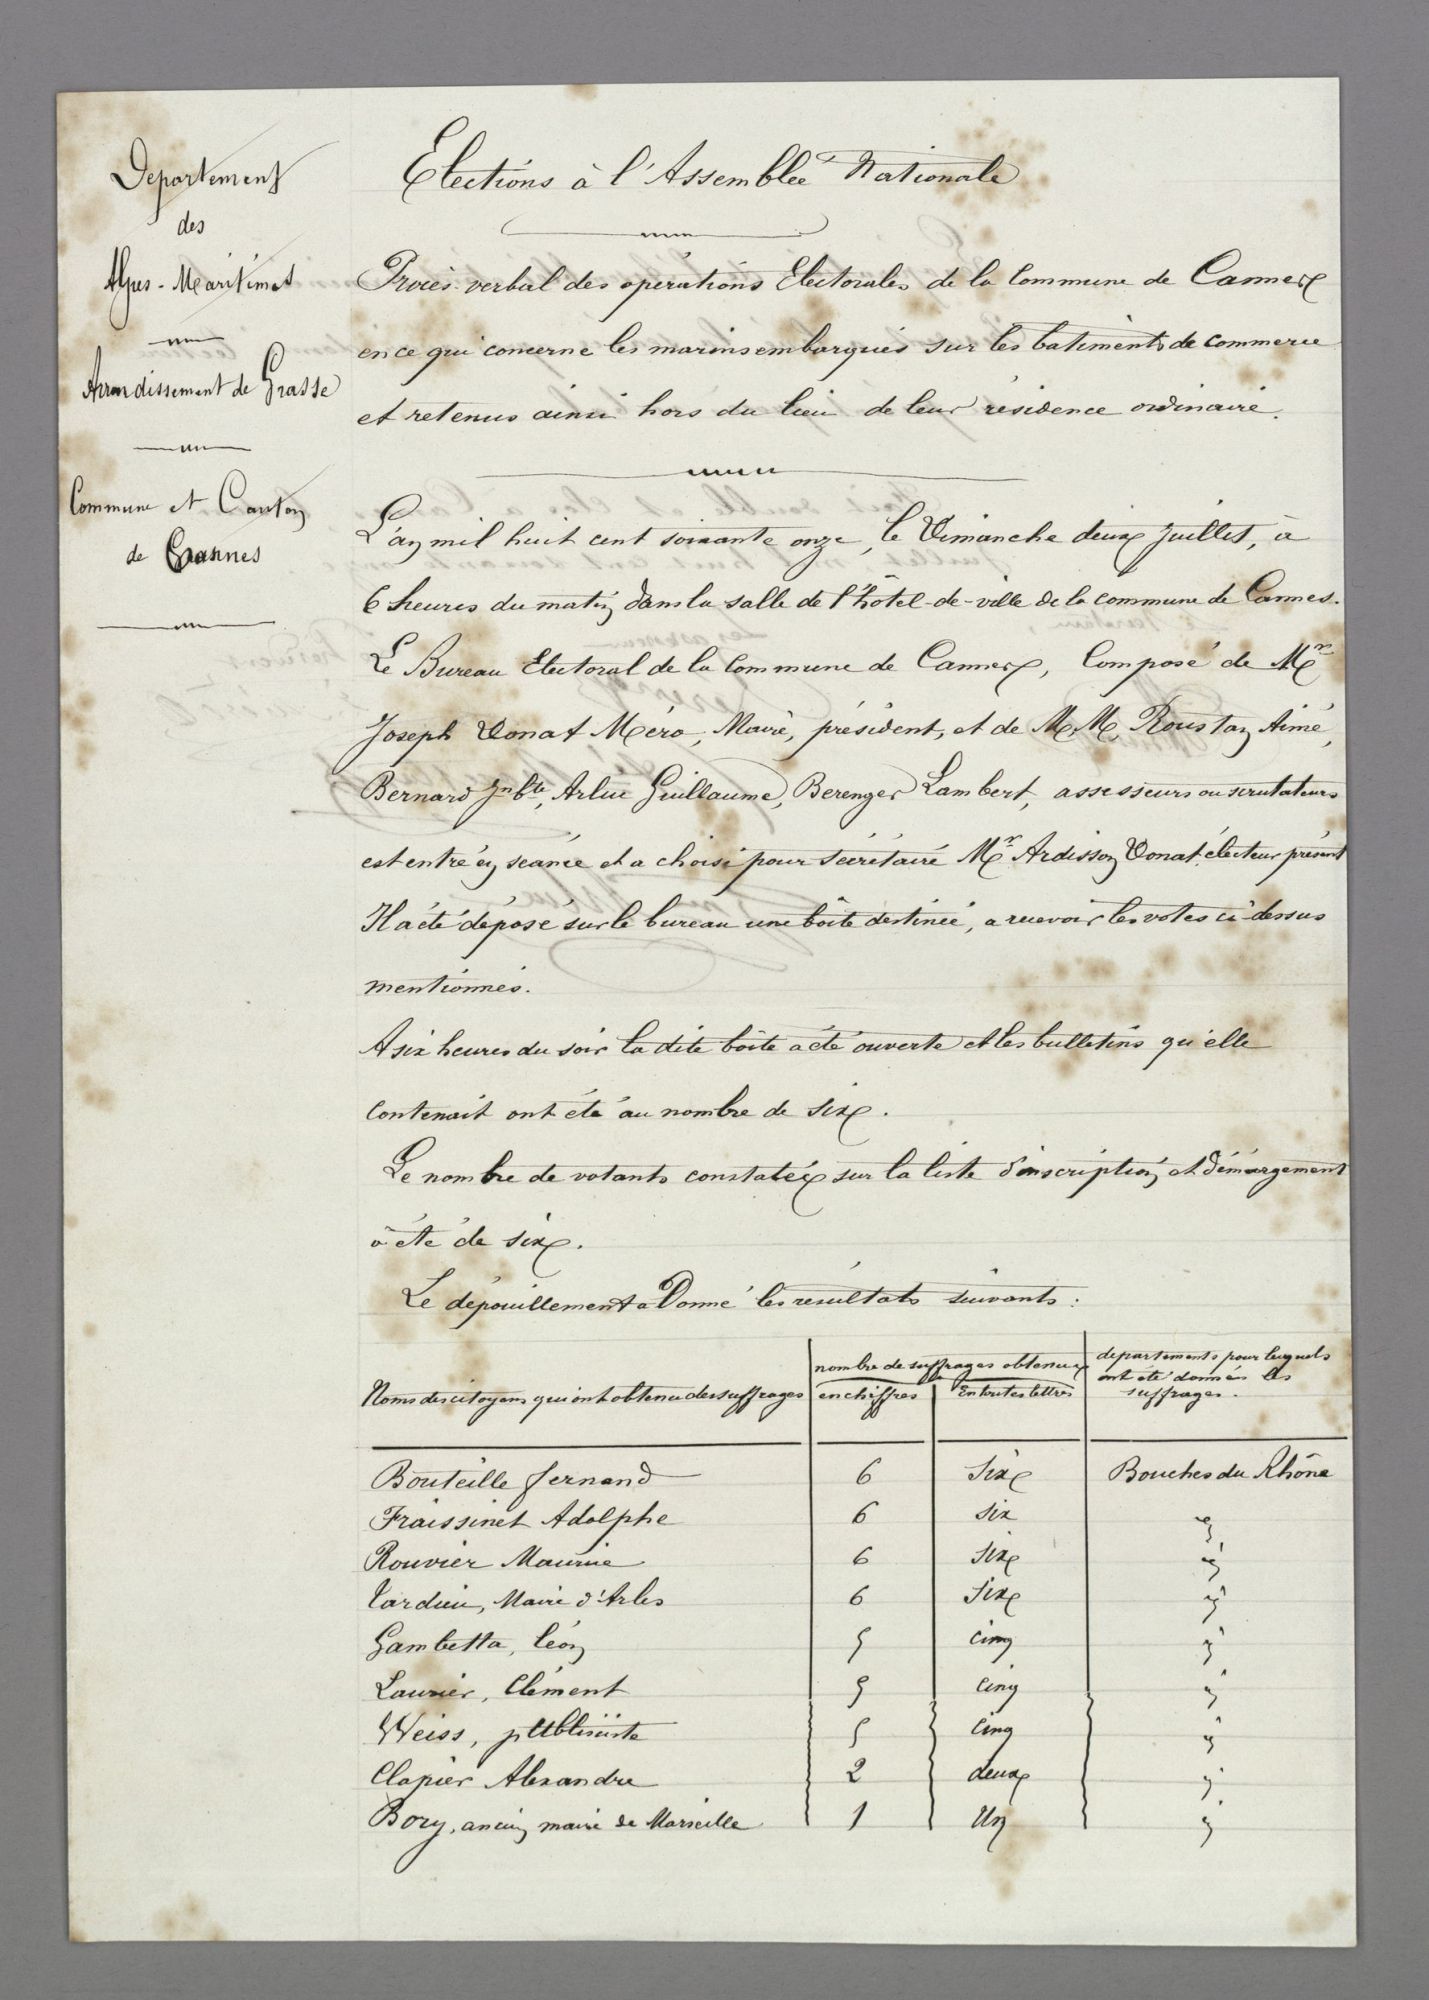 Département
des
Alpes-Maritimes
Arrondissement de Grasse
Commune et Canton
de Cannes
Elections à l'Assemblée Nationale
Procès-verbal des opérations Electorales de la Commune de Cannes
en ce qui concerne les marins embarqués sur les batiments de commerce
et retenus ainsi hors du lieu de leur résidence ordinaire.
L'an mil huit cent soixante onze, le Dimanche deux Juillet, à
6 heures du matin dans la salle de l'hôtel-de-ville de la commune de Cannes.
Le Bureau Electoral de la Commune de Cannes, Composé de Mr
Joseph Donat Méro, Maire, président, et de M.M. Roustan Aimé,
Bernard Jn Bte, Arluc Guillaume, Berenger Lambert, assesseurs ou scrutateurs
est entré en séance et a choisi pour secrétaire Mr Ardisson Donat électeur présent
Il a été déposé sur le bureau une boîte destinée, a recevoir les votes ci-dessus
mentionnés.
A six heures du soir la dite boîte a été ouverte et les bulletins qu'elle
contenait ont été au nombre de six.
Le nombre de votants constatés sur la liste d'inscription et d'émargement
a été de six.
Le dépouillement a Donné les résultats suivants :
Noms des citoyens qui ont obtenu des suffrages
nombre de suffrages obtenus
en chiffres
En toutes lettres
départements pour lesquels
ont été donnés les
suffrages.
Bouteille fernand 6 Six Bouches du Rhône
Fraissinet Adolphe 6 six "
Rouvier Maurice 6 Six "
Tardieu, Maire d'Arles 6 Six "
Gambetta, Léon 5 cinq "
Laurier, Clément 5 cinq "
Weiss, publiciste 5 cinq "
Clapier Alexandre 2 deux "
Bory, ancien maire de Marseille 1 Un "